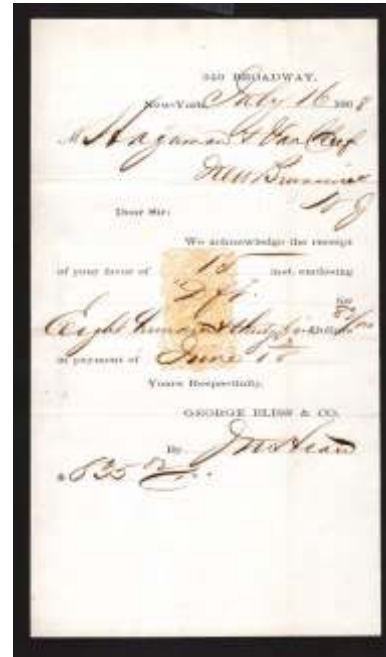 340 BROADWAY.
New-York, July 16 1868
M Hagaman & Van Cleef
New Brunswick
N J
Dear Sir:
We acknowledge the receipt
of your favor of 15 inst. enclosing
Dft. for
Eight hundred & thirty Dollars
in payment of June 15
Yours Respectfully,
GEORGE BLISS & CO.
By
$